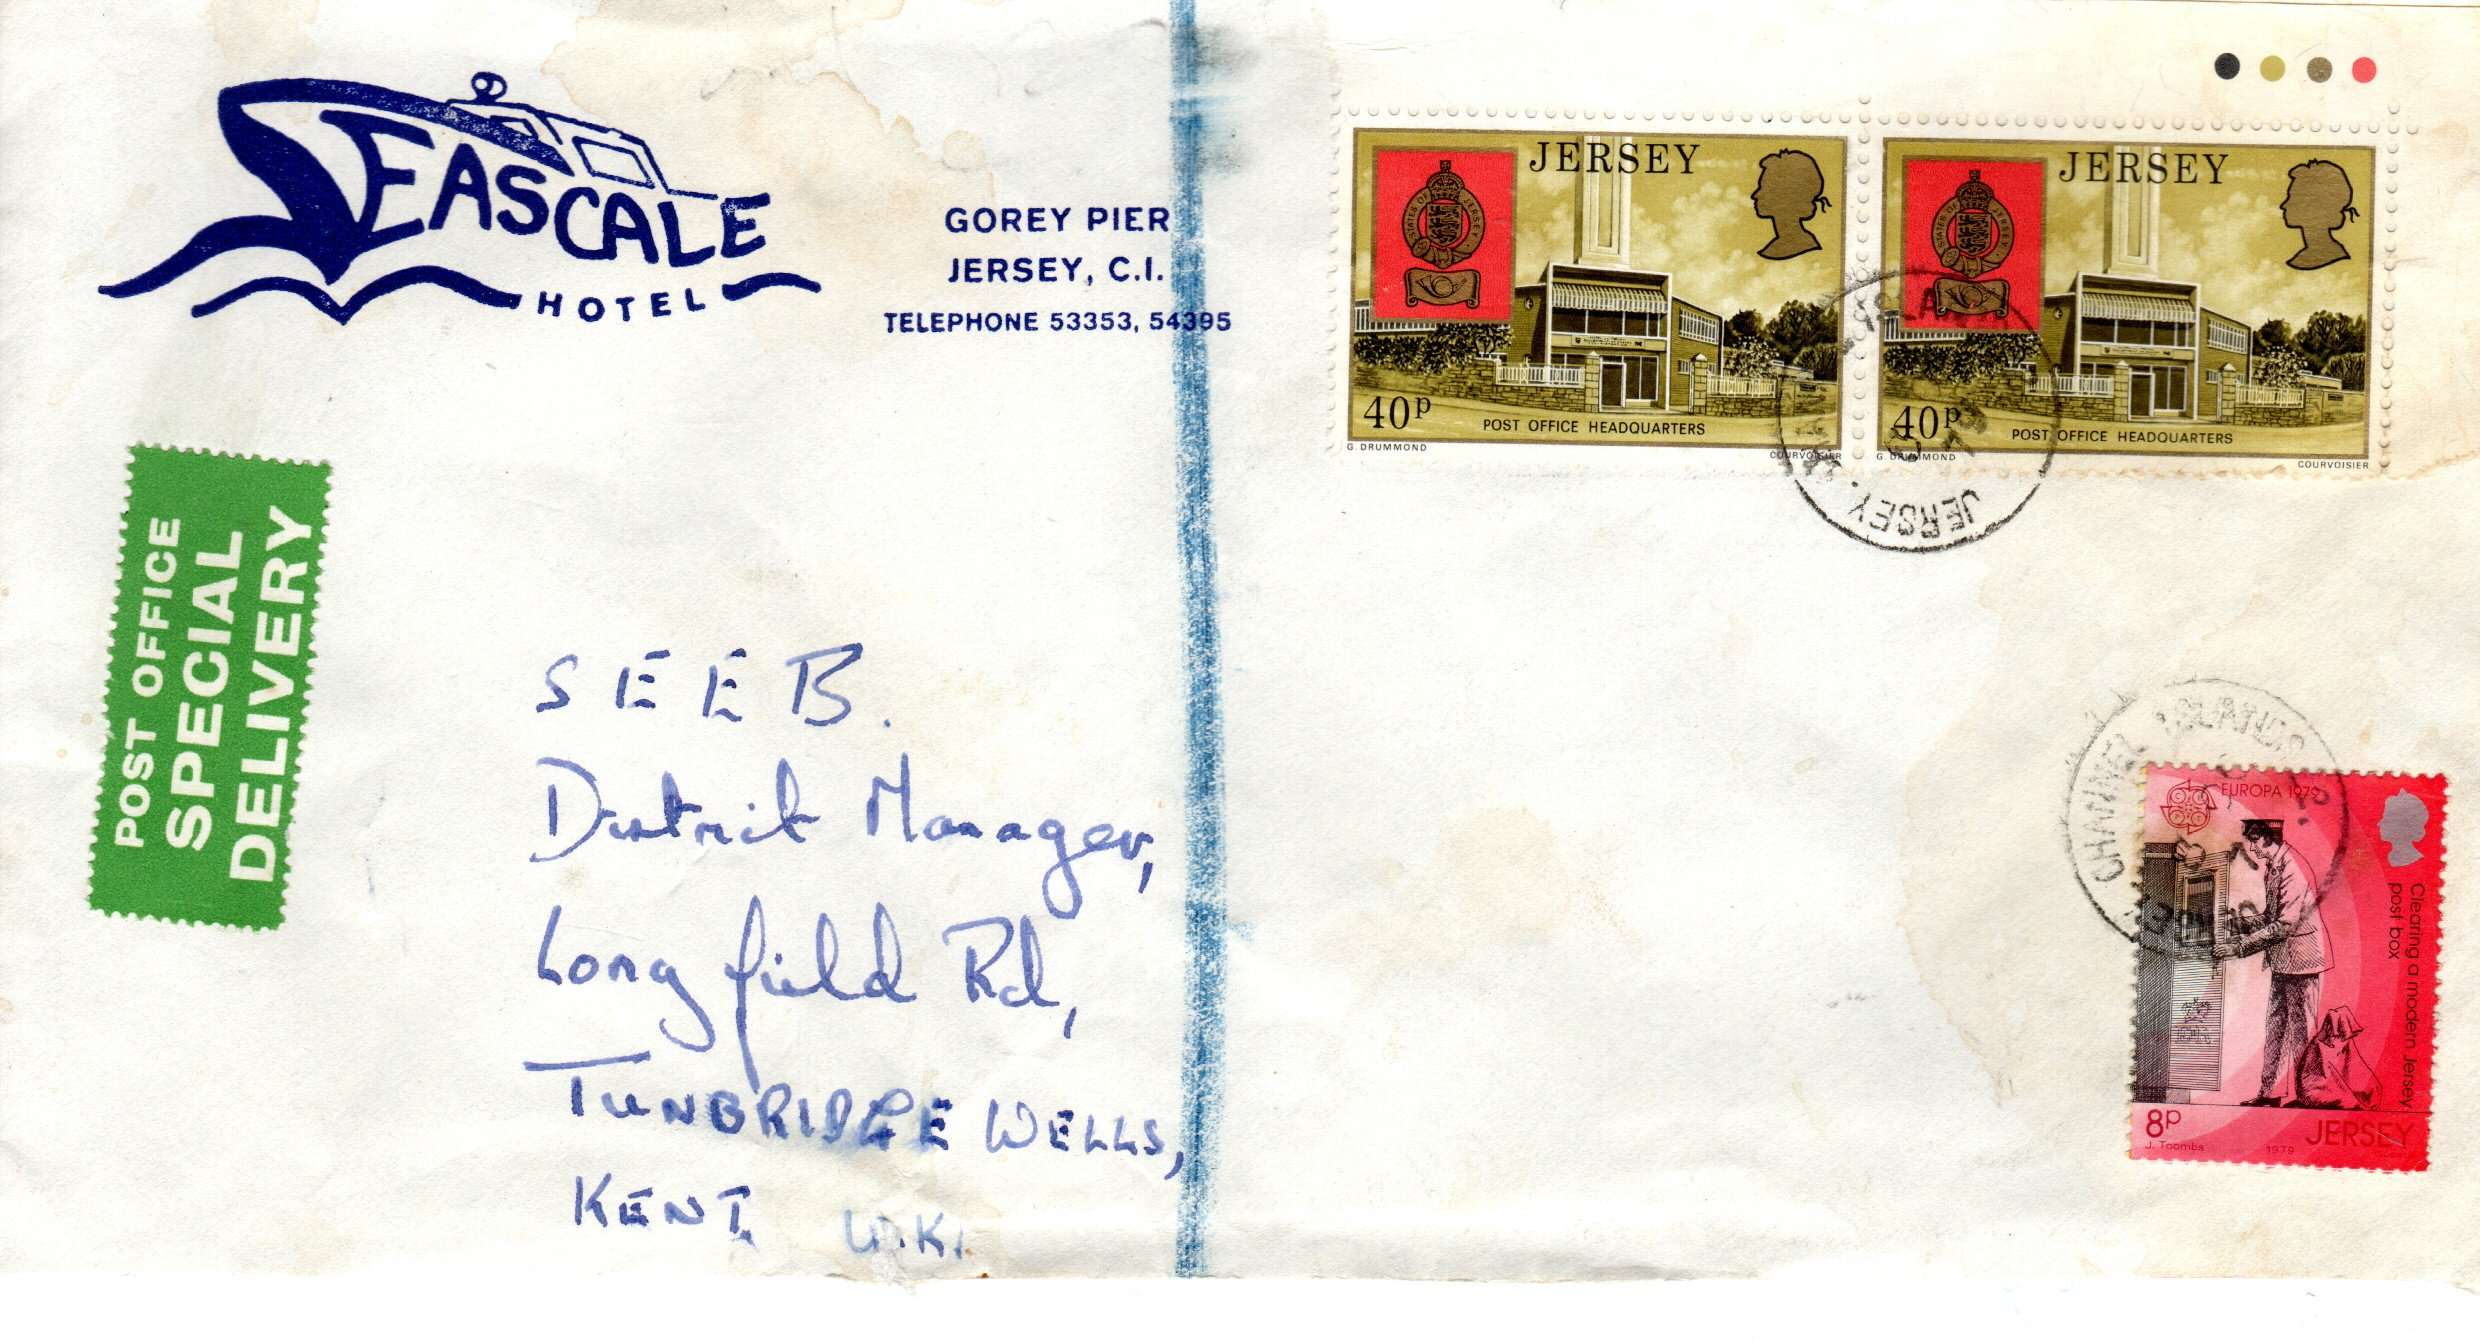 SEASCALE
HOTEL
GOREY PIER
JERSEY, C.I.
TELEPHONE 53353, 54395
JERSEY
STATES OF JERSEY
40p
POST OFFICE HEADQUARTERS
G. DRUMMOND
COURVOISIER
JERSEY
STATES OF JERSEY
40p
POST OFFICE HEADQUARTERS
G. DRUMMOND
COURVOISIER
JERSEY
POST OFFICE
SPECIAL
DELIVERY
S E E B.
District Manager,
Longfield Rd,
TUNBRIDGE WELLS,
KENT U.K.
CHANNEL ISLANDS
JERSEY
EUROPA 1979
Clearing a modern Jersey
post box
8p
JERSEY
J. Toombs
1979